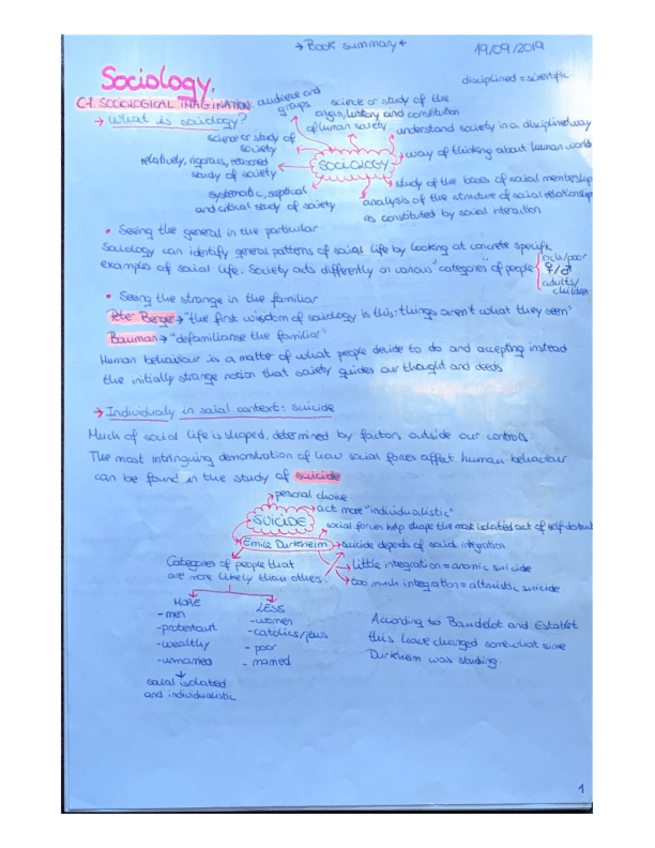 → Book summary ←
19/09/2019
Sociology.
disciplined = scientific.
C-1. SOCIOLOGICAL IMAGINATION.
audience and groups
→ What is sociology?
science or study of the
origin, history and constitution
of human society
understand society in a disciplined way
science or study of
society
SOCIOLOGY
way of thinking about human world
relatively, rigorous, reasoned
study of society
study of the bases of social membership
systematic, sceptical
and critical study of society
analysis of the structure of social relationship
as constituted by social interaction
• Seeing the general in the particular
Sociology can identify general patterns of social life by looking at concrete specific
examples of social life. Society acts differently on various "categories" of people
rich/poor
♀/♂
adults/
children
• Seeing the strange in the familiar
Peter Berger → "the first wisdom of sociology is this: things aren't what they seem"
Bauman → "defamiliarise the familiar"
Human behaviour is a matter of what people decide to do and accepting instead
the initially strange notion that society guides our thought and deeds
→ Individually in social context: suicide
Much of social life is shaped, determined by factors outside our controls.
The most intringuing demonstration of how social forces affect human behaviour
can be found in the study of suicide
personal choice
act more "individualistic"
SUICIDE
social forces help shape the most isolated act of self-destruct
Emile Durkheim → suicide depends of social integration
Categories of people that
are more likely than others.
little integration = anomic suicide
too much integration = altruistic suicide
MORE
- men
- protestant
- wealthy
- unmarried
↓
social isolated
and individualistic
LESS
- women
- catolics/jews
- poor
- married
According to Baudelot and Establet
this have changed somewhat since
Durkheim was studing.
1